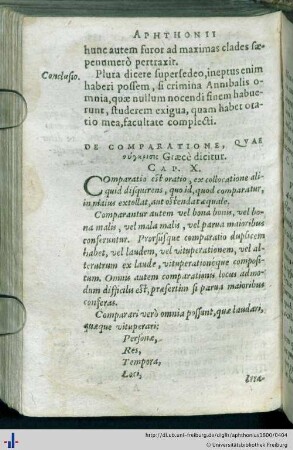 APHTHONII
hunc autem furor ad maximas clades sæ-
penumerò pertraxit.
Conclusio. Plura dicere supersedeo, ineptus enim
haberi possem, si crimina Annibalis o-
mnia, quæ nullum nocendi finem habue-
runt, studerem exigua, quam habet ora-
tio mea, facultate complecti.
DE COMPARATIONE, QVAE
σύγκρισις Græcè dicitur.
CAP. X.
Comparatio est oratio, ex collocatione ali-
quid disquirens, quo id, quod comparatur,
in maius extollat, aut ostendat æquale.
Comparantur autem vel bona bonis, vel bo-
na malis, vel mala malis, vel parua maioribus
conferuntur. Prorsusque comparatio duplicem
habet, vel laudem, vel vituperationem, vel al-
terutrum ex laude, vituperationeque composi-
tum. Omnis autem comparationis locus admo-
dum difficilis est, præsertim si parua maioribus
conferas.
Comparari verò omnia possunt, quæ laudari,
quæque vituperari:
Personæ,
Res,
Tempora,
Loci,
http://dl.ub.uni-freiburg.de/diglit/aphthonius1600/0404
© Universitätsbibliothek Freiburg